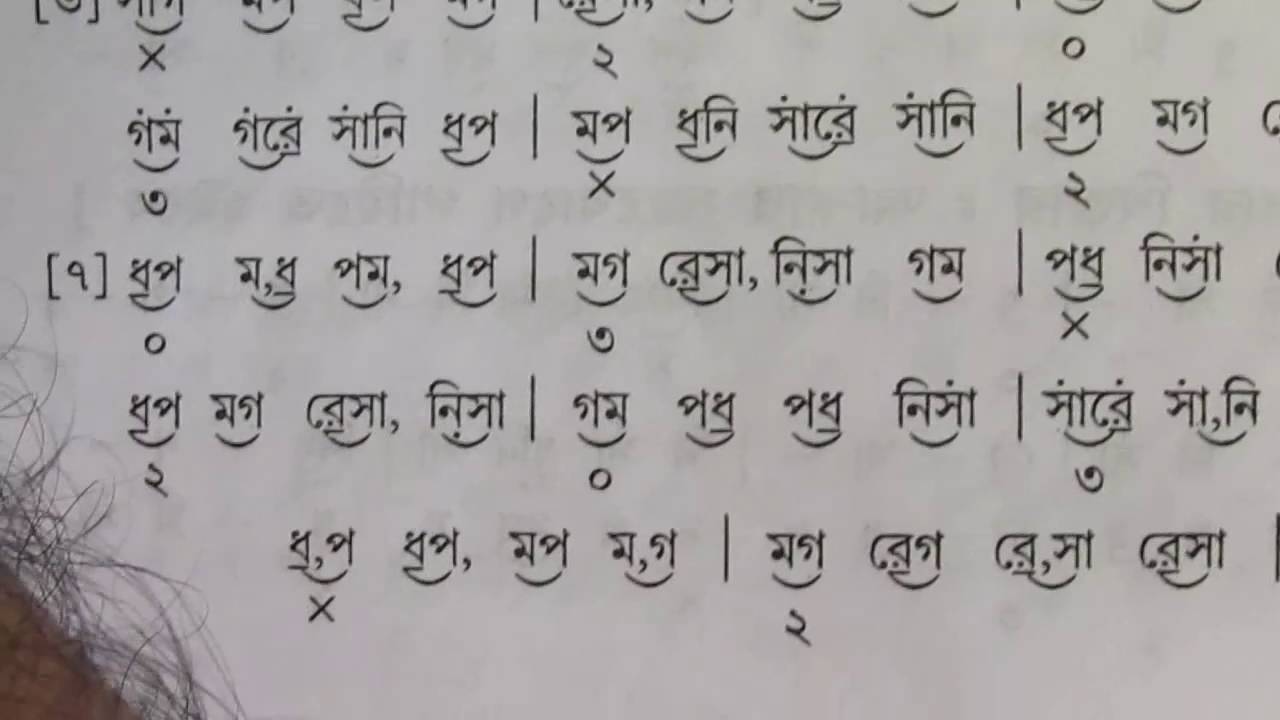 × ২ ০
গ॑ম॑ গ॑রে॑ সা॑নি ধ॒প | মপ ধ॒নি সা॑রে॑ সা॑নি | ধ॒প মগ
৩ × ২
[৭] ধ॒প ম,ধ॒ পম, ধ॒প | মগ রে॒সা, নি়সা গম | পধ॒ নিসা॑
০ ৩ ×
ধ॒প মগ রে॒সা, নি়সা | গম পধ॒ পধ॒ নিসা॑ | সা॑রে॑ সা॑,নি
২ ০ ৩
ধ॒,প ধ॒প, মপ ম,গ | মগ রে॒গ রে॒,সা রে॒সা |
× ২